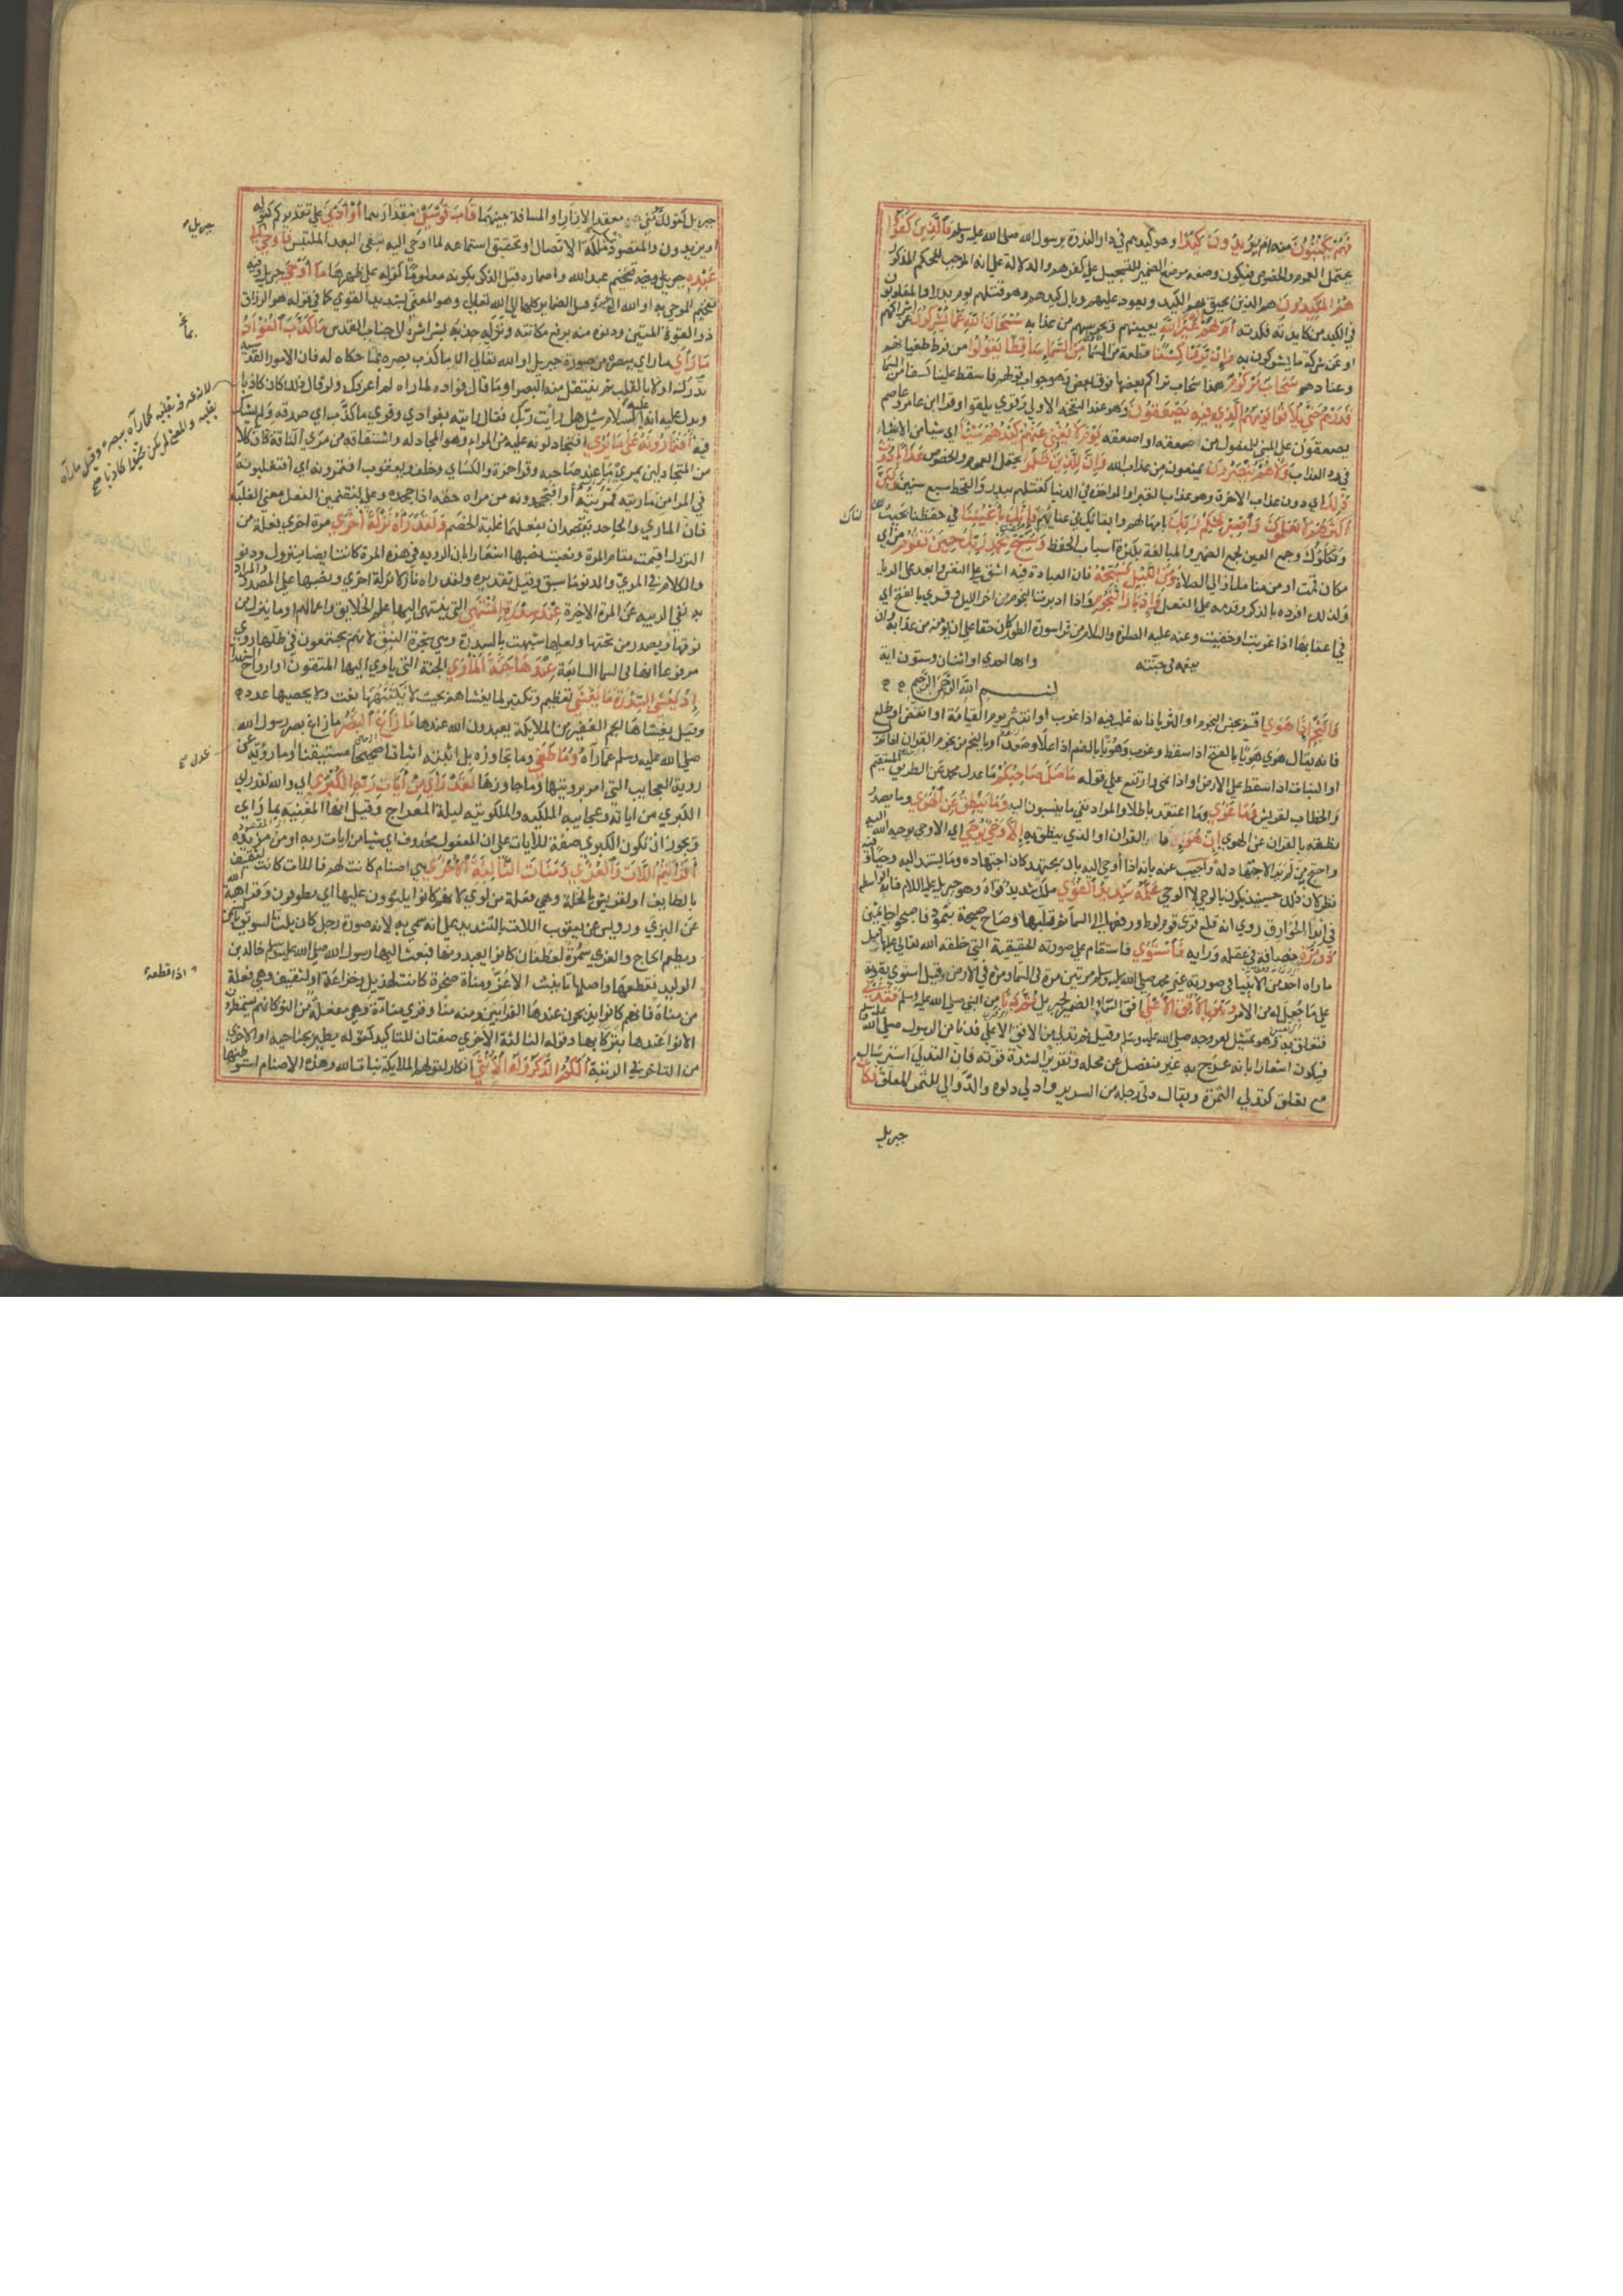 فهم يكتبون منه ام يريدون كيدا وهو كيدهم في دار الندوة برسول الله صلى الله عليه وسلم فالذين كفروا
يحتمل العموم والخصوص فيكون وضعه موضع الضمير للتسجيل على كفرهم والدلالة على انه الموجب للحكم المذكور
هم المكيدون هم الذين يحيق بهم الكيد ويعود عليهم وبال كيدهم وهو قتلهم يوم بدر او المغلوبون
في الكيد من كايدته فكدته ام لهم اله غير الله يعينهم ويحرسهم من عذابه سبحان الله عما يشركون عن اشراكهم
او عن شركة ما يشركون به وان يروا كسفا قطعة من السماء ساقطا يقولوا من فرط طغيانهم
وعنادهم سحاب مركوم هذا سحاب تراكم بعضها فوق بعض وهو جواب قولهم فاسقط علينا كسفا من السما
فذرهم حتى يلاقوا يومهم الذي فيه يصعقون وهو عند النفخة الاولى وقري يلقوا وقرا ابن عامر وعاصم
يصعقون على المبني للمفعول من صعقه او اصعقه يوم لا يغني عنهم كيدهم شيئا اي شيا من الاغناء
في رد العذاب ولا هم ينصرون يمنعون من عذاب الله وان للذين ظلموا يحتمل العموم والخصوص عذابا دون
ذلك اي دون عذاب الاخرة وهو عذاب القبر او المواخذة في الدنيا كقتلهم ببدر والقحط سبع سنين ولكن
اكثرهم لا يعلمون واصبر لحكم ربك بامهالهم وابقائك في عنايهم فانك باعيننا في حفظنا بحيث نراك
ونكلؤك وجمع العين لجمع الضمير والمبالغة بكثرة اسباب الحفظ وسبح بحمد ربك حين تقوم من اي
مكان قمت او من منامك او الى الصلاة ومن الليل فسبحه فان العبادة فيه اشق على النفس وابعد عن الريا
ولذلك افرده بالذكر وقدمه على الفعل وادبار النجوم واذا ادبرت النجوم من اخر الليل وقري بالفتح اي
في اعقابها اذا غربت او خفيت وعنه عليه الصلوة والسلام من قرا سورة الطور كان حقا على الله ان يؤمنه من عذابه وان
ينعمه في جنته
وايها احدى او اثنان وستون اية
بسم الله الرحمن الرحيم
والنجم اذا هوى اقسم بجنس النجوم او الثريا فانه غلب فيه اذا غرب او انتثر يوم القيامة او انقض او طلع
فانه يقال هوى هويا بالفتح اذا سقط وغرب وهويا بالضم اذا علا وصعد او بالنجم من نجوم القران اذا نزل
او النبات اذا سقط على الارض او اذا نمى وارتفع على قوله ما ضل صاحبكم ما عدل محمد عن الطريق المستقيم
والخطاب لقريش وما غوى وما اعتقد باطلا والمراد نفي ما ينسبون اليه وما ينطق عن الهوى وما يصدر
نطقه بالقران عن الهوى ان هو ما القران او الذي ينطق به الا وحي يوحى اي الا وحي يوحيه الله اليه
واحتج به من لم ير الاجتهاد له واجيب عنه بانه اذا اوحي اليه بان يجتهد كان اجتهاده وما يستند اليه وحيا وفيه
نظر لان ذلك حينئذ يكون بالوحي لا الوحي علمه شديد القوى ملك شديد قواه وهو جبريل عليه السلام فانه الواسطة
في ابدا الخوارق روي انه قلع قرى قوم لوط ورفعها الى السما ثم قلبها وصاح صيحة بثمود فاصبحوا جاثمين
ذو مرة حصافة في عقله ورايه فاستوى فاستقام على صورته الحقيقية التي خلقه الله تعالى عليها قيل
ما راه احد من الانبيا في صورته غير محمد صلى الله عليه وسلم مرتين مرة في السماء ومرة في الارض وقيل استوى بقوته
على ما جعل له من الامر وهو بالافق الاعلى افق السماء والضمير لجبريل ثم دنا من النبي صلى الله عليه وسلم فتدلى
فتعلق به وهو تمثيل لعروجه صلى الله عليه وسلم وقيل ثم تدلى من الافق الاعلى فدنا من الرسول صلى الله عليه وسلم
فيكون اشعارا بانه عرج به غير منفصل عن محله وتقرير لشدة قوته فان التدلي استرسال
مع تعلق كتدلي الثمرة ويقال دلى رجله من السرير وادلى دلوه والدوالي للثمر المعلق فكان
جبريل
جبريل كقولك هو مني معقد الازار او المسافة بينهما قاب قوسين مقدارهما او ادنى على تقديركم كقوله
او يزيدون والمقصود تمثيل ملكة الاتصال وتحقيق استماعه لما اوحي اليه بنفي البعد الملبس فاوحى الى
عبده جبريل وفيه تفخيم عبد الله واضماره قبل الذكر لكونه معلوما كقوله على ظهرها ما اوحى جبريل وفيه
تفخيم للموحى به او الله اليه وقيل الضماير كلها الى الله تعالى وهو المعني بشديد القوى كما في قوله هو الرزاق
ذو القوة المتين ودنوه منه برفع مكانته وتدليه جذبه بشراشره الى جناب القدس ما كذب الفؤاد
ما راى ما راى ببصره من صورة جبريل او الله تعالى اي ما كذب بصره بما حكاه له فان الامور القدسية
تدرك اولا بالقلب ثم ينتقل منه الى البصر او ما قال فؤاده لما راه لم اعرفك ولو قال ذلك كان كاذبا
ويدل عليه انه عليه السلام سئل هل رايت ربك فقال رايته بفؤادي وقري ما كذب اي صدقه ولم يشك
فيه افتمارونه على ما يرى افتجادلونه عليه من المراء وهو المجادله واشتقاقه من مرى الناقة فان كلا
من المتجادلين يمري ما عند صاحبه وقرا حمزة والكسائي وخلف ويعقوب افتمرونه اي افتغلبونه
في المرا من ماريته فمريته او افتجحدونه من مراه حقه اذا جحده وعلى لتضمين الفعل معنى الغلبة
فان المماري والجاحد يقصدان بفعلهما غلبة الخصم ولقد راه نزلة اخرى مرة اخرى فعلة من
النزول اقيمت مقام المرة ونصبت نصبها اشعارا بان الرؤية في هذه المرة كانت ايضا بنزول ودنو
والكلام في المرئي والدنو ما سبق وقيل تقديره ولقد راه نازلا نزلة اخرى ونصبها على المصدر والمراد
به نفي الريبة عن المرة الاخيرة عند سدرة المنتهى التي ينتهي اليها علم الخلايق واعمالهم او ما ينزل من
فوقها ويصعد من تحتها ولعلها شبهت بالسدرة وهي شجرة النبق لانهم يجتمعون في ظلها وروي
مرفوعا انها في السما السابعة عندها جنة الماوى الجنة التي ياوي اليها المتقون او ارواح الشهدا
اذ يغشى السدرة ما يغشى تعظيم وتكثير لما يغشاها بحيث لا يكتنهها نعت ولا يحصيها عدد
وقيل يغشاها الجم الغفير من الملايكة يعبدون الله عندها ما زاغ البصر ما زاغ بصر رسول الله
صلى الله عليه وسلم عما رآه وما طغى وما تجاوزه بل اثبته اثباتا صحيحا مستيقنا او ما عدل عن
روية العجايب التي امر برويتها وما جاوزها لقد راى من ايات ربه الكبرى اي والله لقد راى
الكبرى من اياته وعجايبه الملكيه والملكوتيه ليلة المعراج وقيل انها المعنية بما راى
ويجوز ان تكون الكبرى صفة للايات على ان المفعول محذوف اي شيا من ايات ربه او من مزيدة
افرايتم اللات والعزى ومناة الثالثة الاخرى هي اصنام كانت لهم فاللات كانت لثقيف
بالطايف او لقريش بنخلة وهي فعلة من لوى لانهم كانوا يلوون عليها اي يطوفون وقرا هبة الله
عن البزي ورويس عن يعقوب اللات بالتشديد على انه سمي به لانه صورة رجل كان يلت السويق بالسمن
ويطعم الحاج والعزى سمرة لغطفان كانوا يعبدونها فبعث اليها رسول الله صلى الله عليه وسلم خالد بن
الوليد فقطعها واصلها تانيث الاعز ومناة صخرة كانت لهذيل وخزاعة او لثقيف وهي فعلة
من مناه فانهم كانوا يذبحون عندها القرابين ومنه منا وقري مناءة وهي مفعلة من النوء كانهم يستمطرون
الانواء عندها تبركا بها وقوله الثالثة الاخرى صفتان للتاكيد كقوله يطير بجناحيه او الاخرى
من التاخر في الرتبة الكم الذكر وله الانثى انكار لقولهم الملايكة بنات الله وهذه الاصنام استوطنها
جبريل
لانه عرفه بقلبه كما رآه ببصره وقيل ما رآه
بقلبه والمعنى لم يكن تخيلا كاذبا صح
عدل صح
اذا قطعه